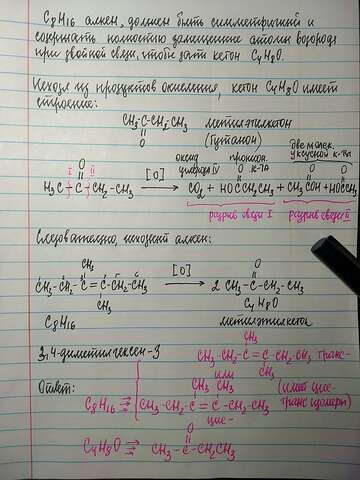 C₈H₁₆ алкен, должен быть симметричный и
содержать полностью замещение атомы водорода
при двойной связи, чтобы дать кетон C₄H₈O.
Исходя из продуктов окисления, кетон C₄H₈O имеет
строение:
CH₃-C-CH₂-CH₃ метилэтилкетон
O (бутанон)
оксид углерода IV пропион. к-та две молек. уксусной к-ты
O I II [O] O O O
H₃C-C-CH₂-CH₃ → CO₂ + HOCCH₂CH₃ + CH₃COH + HOCCH₃
разрыв связи I разрыв связи II
Следовательно, исходит алкен:
CH₃ [O] O
CH₃-CH₂-C=C-CH₂-CH₃ → 2 CH₃-C-CH₂-CH₃
CH₃ C₄H₈O
C₈H₁₆ метилэтилкетон
3,4-диметилгексен-3
CH₃
CH₃-CH₂-C=C-CH₂-CH₃ транс-
CH₃
или
Ответ: CH₃ CH₃ (имеет цис-
C₈H₁₆ ⇒ CH₃-CH₂-C=C-CH₂-CH₃ транс изомеры)
цис-
O
C₄H₈O ⇒ CH₃-C-CH₂CH₃